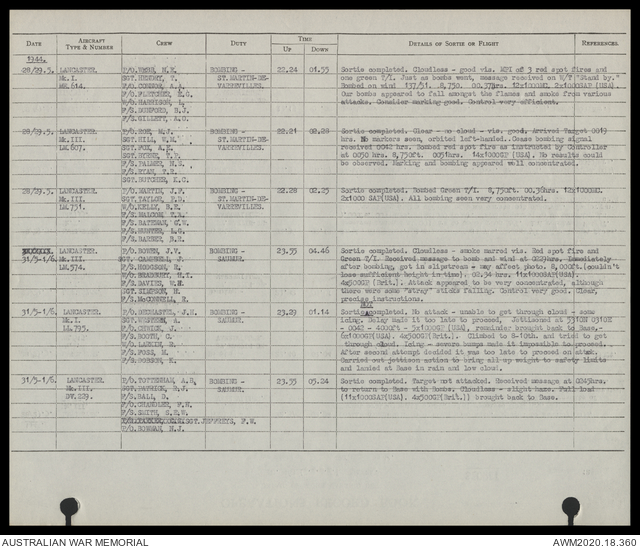 DATE AIRCRAFT TYPE & NUMBER CREW DUTY TIME UP DOWN DETAILS OF SORTIE OR FLIGHT REFERENCES
1944.
28/29.5. LANCASTER. P/O. WEBB, H.E. BOMBING - 22.24 01.55 Sortie completed. Cloudless - good vis. MPI of 3 red spot fires and
Mk.I. SGT. HENDRY, T. ST.MARTIN-DE- one green T/I. Just as bombs went, message received on W/T "Stand by."
ME.614. F/O. CONNON, A.A. VARREVILLES. Bombed on wind 137/21. 8,750. 00.37hrs. 12x1000MC, 2x1000GAP (USA).
F/O. FLETCHER, Our bombs appeared to fall amongst the flames and smoke from various
W/O. HARRISON, L. attacks. Consider marking good. Control very efficient.
F/S. DUNFORD, R.J.
F/S. GILLETT, A.G.
28/29.5. LANCASTER. P/O. ROSE, M.J. BOMBING - 22.21 02.28 Sortie completed. Clear - no cloud - vis. good. Arrived Target 0019
Mk.III. SGT. HILL, W.M. ST.MARTIN-DE- hrs. No markers seen, orbited left-handed. Cease bombing signal
LM607. SGT. FOX, A.E. VARREVILLES. received 0042 hrs. Bombed red spot fire as instructed by Controller
SGT. at 0050 hrs. 8,750ft. 0051hrs. 14x1000GP(USA). No results could
F/S. PALMER, N.S. be observed. Marking and bombing appeared well concentrated.
F/S. RYAN, T.R.
SGT. BUTCHER, K.C.
28/29.5. LANCASTER. P/O. MARTIN, J.F. BOMBING - 22.28 02.25 Sortie completed. Bombed Green T/I. 8,750ft. 00.36hrs. 12x1000MC.
Mk.I. SGT. TAYLOR, F.D. ST.MARTIN-DE- 2x1000 SAP(USA). All bombing seen very concentrated.
LL751. W/O. KELLY, B.E. VARREVILLES.
F/S. MALCOM, T.R.
F/S. BATEMAN, C.W.
F/S. HUNTER, L.G.
F/S. BARNES, B.R.
31/5-1/6. LANCASTER. P/O. BOWEN, J.V. BOMBING - 23.55 04.46 Sortie completed. Cloudless - smoke marred vis. Red spot fire and
Mk.III. SGT. CAMPBELL, J. SAUMUR. Green T/I. Received message to bomb and wind at 0229hrs. Immediately
LM.574. F/S. HODGSON, R. after bombing, got in slipstream - may affect photo. 8,000ft.(couldn't
F/O. BRADBURY, N.I. lose sufficient height in time). 02.34 hrs. 11x1000GAP(USA).
F/S. DAVIES, W.H. 4x500GP (Brit.). Attack appeared to be very concentrated, although
SGT. SIMPSON, H. there were some "stray" sticks falling. Control very good. Clear,
F/S. McCONNELL, R. precise instructions.
31/5-1/6. LANCASTER. P/O. DENMASTER, J.H. BOMBING - 23.29 01.14 Sortie completed. No attack - unable to get through cloud - some
Mk.I. SGT. WESTREN, A. SAUMUR. icing. Delay made it too late to proceed. Jettisoned at 5310N 0310E
LL.795. F/O. CHYNEK, J. - 0042 - 4000ft - 5x1000GP(USA), remainder brought back to Base,-
F/S. BOOTH, C. 6x1000GP(USA). 4x500GP(Brit.). Climbed to 8-10th. and tried to get
W/O. LARKIN, R. through cloud. Icing - severe bumps made it impossible to proceed.
F/S. FOSS, M. After second attempt decided it was too late to proceed on attack.
F/S. DOBSON, K. Carried out jettison action to bring all up weight to safety limits
and landed at Base in rain and low cloud.
31/5-1/6. LANCASTER. P/O. TOTTENHAM, A.B. BOMBING - 23.55 03.24 Sortie completed. Target not attacked. Received message at 0045hrs.
Mk.III. SGT. PATRICK, D.T. SAUMUR. to return to Base with Bombs. Cloudless - slight haze. Full load
DV.229. F/S. BALL, D. (11x1000GSAP(USA). 4x500GP(Brit.)) brought back to Base.
F/O. CHANDLER, F.W.
F/S. SMITH, S.E.W.
SGT. JEFFREYS, F.W.
P/O. BOWMAN, N.J.
AUSTRALIAN WAR MEMORIAL AWM2020.18.360